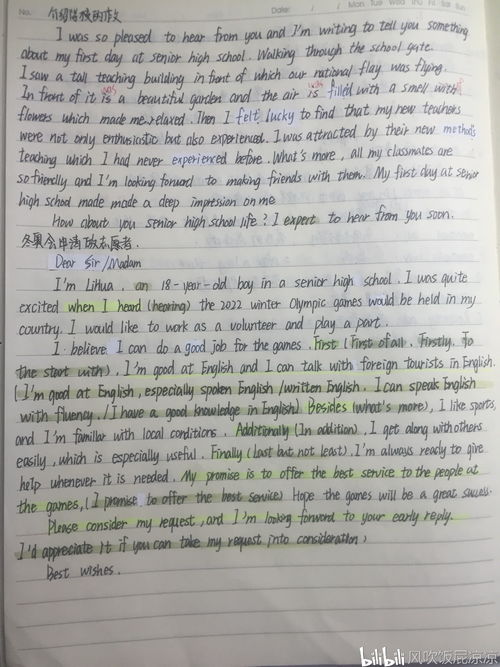 No.
Date: / /
Mon Tue Wed Thu Fri Sat Sun
介绍学校的作文
I was so pleased to hear from you and I'm writing to tell you something
about my first day at senior high school. Walking through the school gate.
I saw a tall teaching building in front of which our national flay was flying.
was was
In front of it is a beautiful garden and the air is filled with a smell with
flowers which made me relaxed. Then I felt lucky to find that my new teachers
were not only enthusiastic but also experienced. I was attracted by their new methods
teaching which I had never experienced before. What's more, all my classmates are
so friendly and I'm looking forward to making friends with them. My first day at senior
high school made made a deep impression on me
How about you senior high school life? I expert to hear from you soon.
冬奥会申请做志愿者.
Dear Sir/Madam
I'm Lihua, an 18-year-old boy in a senior high school. I was quite
excited when I heard (hearing) the 2022 winter Olympic games would be held in my
country. I would like to work as a volunteer and play a part.
I believe I can do a good job for the games. First (First of all. Firstly. To
the start with), I'm good at English and I can talk with foreign tourists in English.
(I'm good at English, especially spoken English /written English. I can speak English
with fluency. /I have a good knowledge in English) Besides (what's more), I like sports,
and I'm familiar with local conditions. Additionally (In addition), I get along with others
easily, which is especially useful. Finally (Last but not least). I'm always ready to give
help whenever it is needed. My promise is to offer the best service to the people at
the games, (I promise to offer the best service) Hope the games will be a great success.
Please consider my request, and I'm looking forward to your early reply.
I'd appreciate it if you can take my request into consideration)
Best wishes.
bilibili 风吹饭屁凉凉